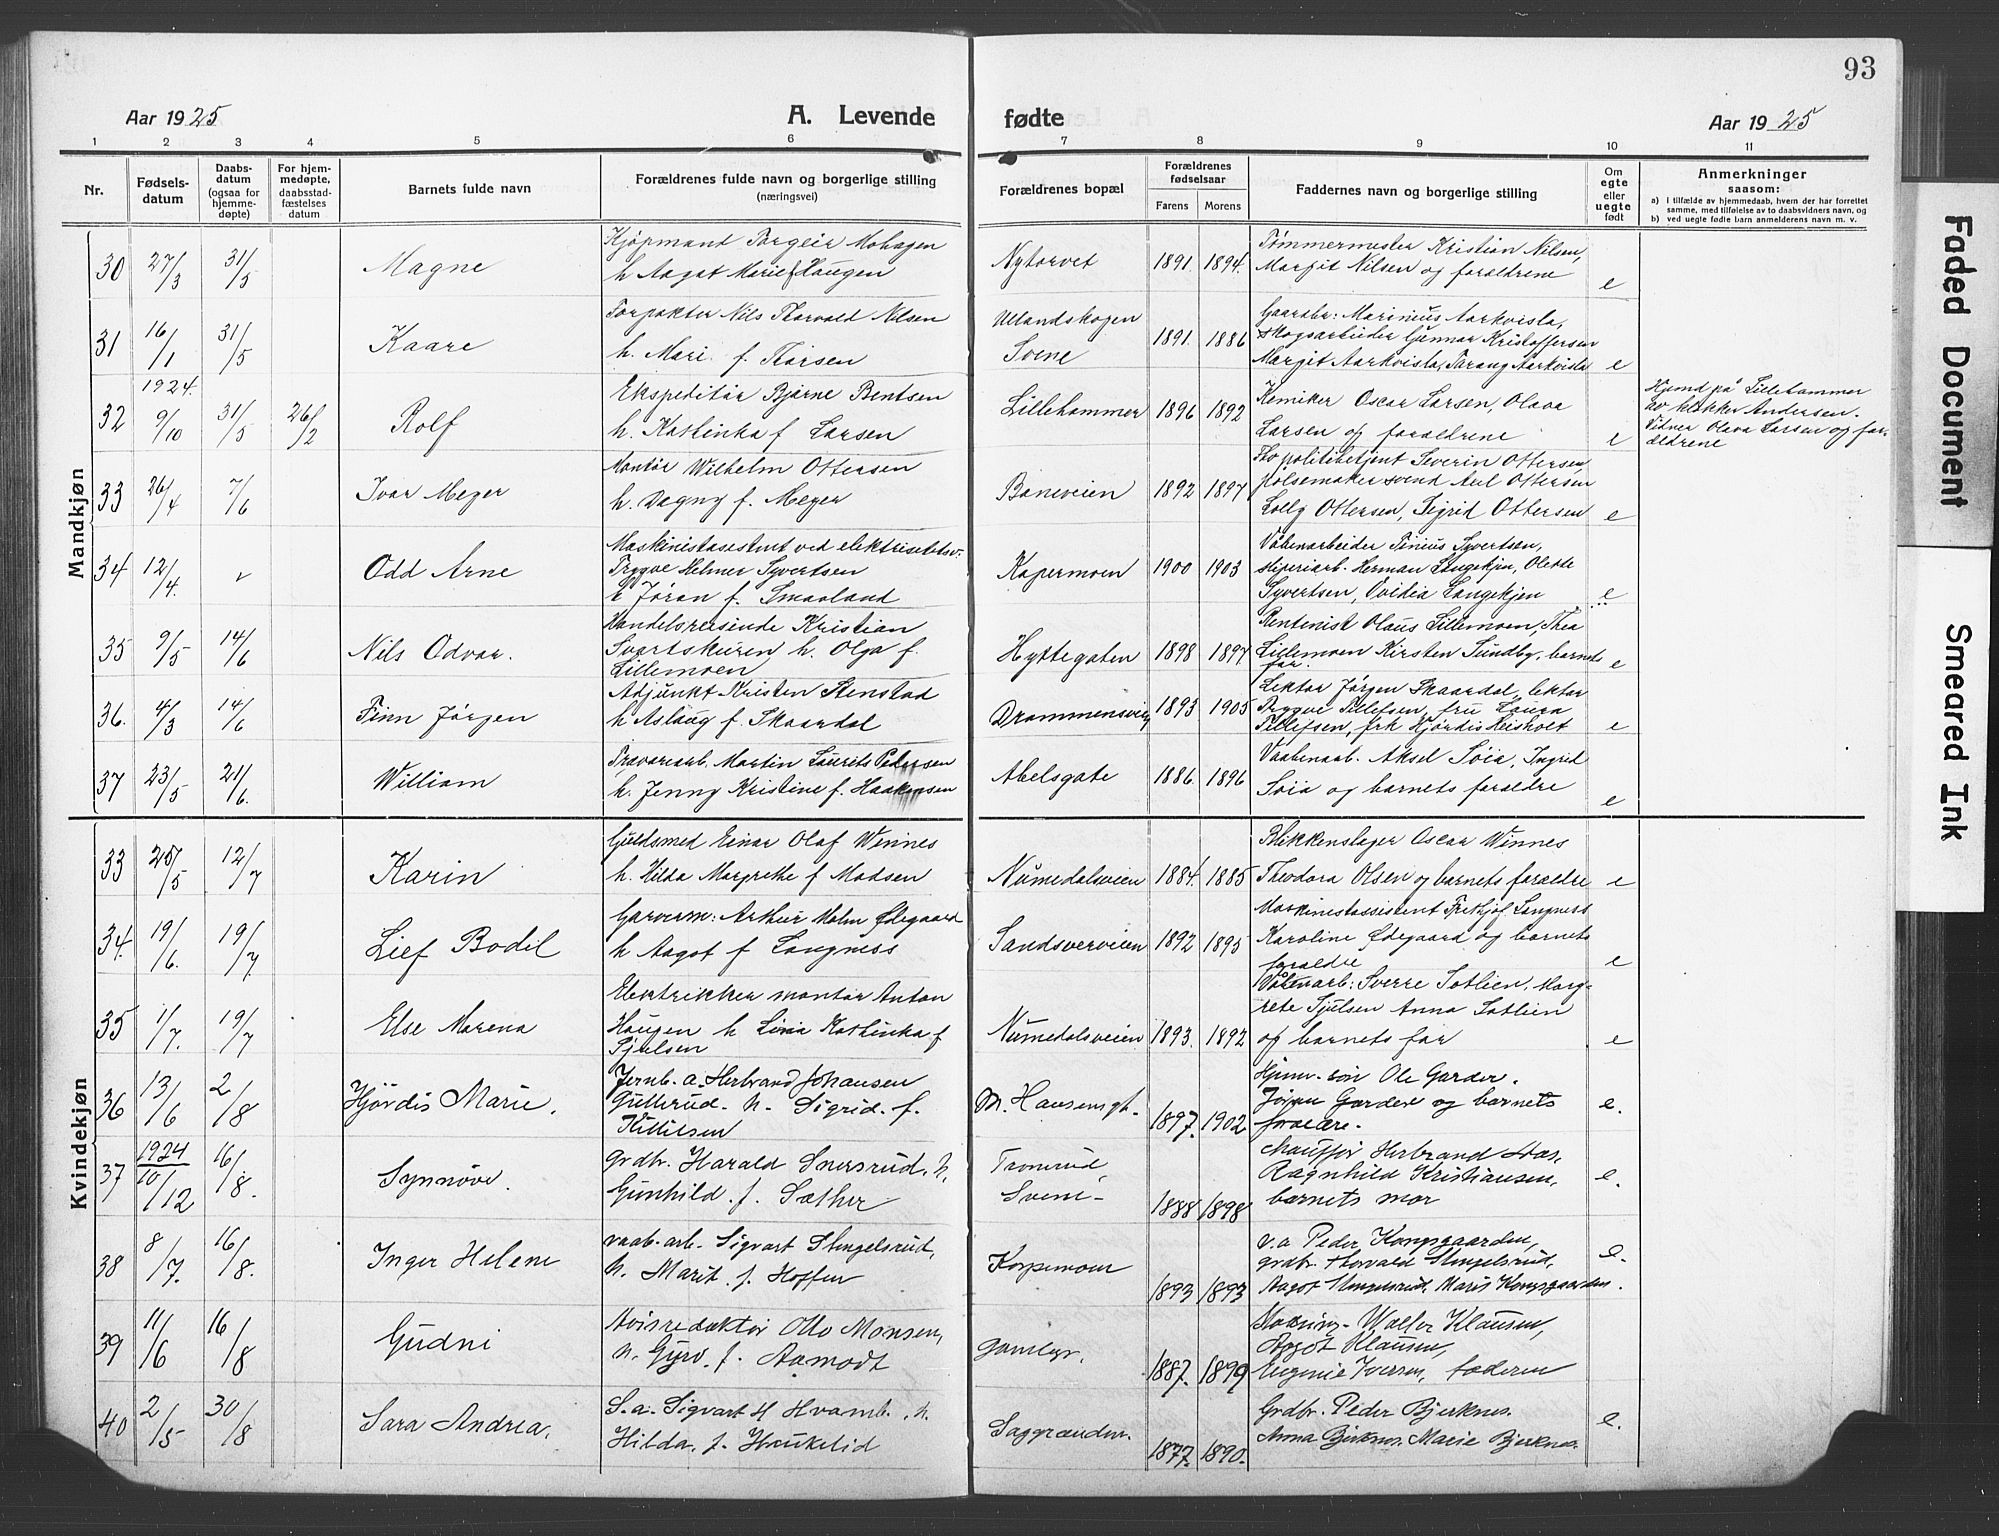 93
Aar 1925
A. Levende
fødte
Aar 1925
1 2 3 4 5 6 7 8 9 10 11
Nr.
Fødsels-
datum
Daabs-
datum
(ogsaa for
hjemme-
døpte)
For hjem-
medøpte,
daabsstad-
fæstelses
datum
Barnets fulde navn
Forældrenes fulde navn og borgerlige stilling
(næringsvei)
Forældrenes bopæl
Forældrenes
fødselsaar
Farens Morens
Faddernes navn og borgerlige stilling
Om
egte
eller
uegte
født
Anmerkninger
saasom:
a) I tilfælde av hjemmedaab, hvem der har forrettet
samme, med tilføielse av to daabsvidners navn, og
b) ved uegte fødte barn anmelderens navn m. v.
Mandkjøn
30 27/3 31/5 Magne
Kjøpmant Torgeir Mohagen
h. Aagot Marie f Haugen
Nytorvet 1891. 1894.
Tømmermester Kristian Nilsen,
Margit Nilsen og foraldrene
e
31 16/1 31/5 Kaare
Forpakter Nils Thorvald Nilsen
h. Mari f. Thorsen
Ulandskogen
Svene
1891. 1886
Gaardbr: Marinius Aarkvisla,
skogsarbeider Gunnar Kristoffersen
Margit Aarkvisla, Torang Aarkvisla
e
32 1924. 9/10 31/5 26/2 Rolf
Ekspeditør Bjarne Bentsen
h. Kathinka f Larsen
Lillehammer 1896 1892
Kemiker Oscar Larsen, Olava
Larsen og foraldrene
e
Hjemd på Lillehammer
av klokker Andersen.
Vidner Olava Larsen og for-
ældrene
33 26/4 7/6 Ivar Meyer
Kontør Wilhelm Ottersen
h. Dagny f. Meyer
Baneveien 1892 1897
Fhv politibetjent Severin Ottersen,
pølsemaker svend Aul Ottersen
Lolly Ottersen, Sigrid Ottersen
e
34 12/4. Odd Arne
Maskinistassistent ved elektrisitetsv.
Trygve Helmer Syvertsen
h Jøran f. Smaaland
Kapermoen 1900 1903
Våbenarbeider Tinius Syvertsen,
Herman Langekjen, Olette
Syvertsen, Ovidia Langekjen
e
35 9/5 14/6 Nils Odvar.
Handelsreisende Kristian
Svartskuren h. Olga f.
Lillemoen
Hyttegaten 1898 1897
Rentenist Olaus Lillemoen, Thea
Lillemoen Kirsten Sundby, barnets
far.
e
36. 4/3 14/6 Finn Jørgen
Adjunkt Kristen Stenstad
h Aslaug f. Skaardal
Drammensvei 1893 1905
Lektor Jørgen Skaardal, lektor
Trygve Tellefsen, fru Laura
Tellefsen, frk Hjørdis Reisholt
e
37 23/5 21/6. William
Travarearb. Martin Laurets Pedersen
h. Jenny Kristine f. Haakensen
Abelsgate 1886. 1896
Vaabenaab. Aksel Soia, Ingrid
Soia og barnets foraldre
e
Kvindekjøn
33 25/5 12/7 Karin
Guldsmed Einar Olaf Winnes
h. Hilda Margrethe f Madsen
Numedalsveien 1884. 1885
Blikkenslager Oscar Winnes
Theodora Olsen og barnets foraldre
e
34. 19/6. 19/7 Lief Bodil
Garverm: Arthur Holm Ødegaard
h Aagot f Langness
Sandsverveien 1892 1895
Maskinestassistent Frithjof Langness
Karoline Ødegaard og barnets
foraldre
e
35 1/7. 19/7 Else Marena
Elektrikker montør Anton
Haugen h Lina Kathinka f
Sjulsen
Numedalsveien 1893. 1892
Våbenarb: Sverre Sotlien, Marg-
rete Sjulsen Anna Sotlien
og barnets far
e
36 13/6 2/8 Hjördis Marie.
Jernb. a. Herbrand Johansen
Gulterud. h. Sigrid. f.
Kittilsen
M. Hansensgt. 1897. 1902
Ole Garder.
Jørgen Gardere og barnets
e.
37 1924 10/12 16/8. Synnøve.
Grdbr. Harald Snersrud, h.
Gunhild. f. Sæther
Tronrud
Svene-
1888 1898
Chauffør Herbrand Aas,
Ragnhild Kristiansen,
barnets mor
e.
38 8/7. 16/8. Inger Helene
vaab. arb. Sigvart Stngelsrud,
h. Marit. f. Hoffen
Korpemoen 1893 1893
v. a Peder Kongsgaarden,
grdbr. Thorvald Stngelsrud,
Aagot Stngelsrud, Maris Kongsgaarden.
e.
39 11/6 16/8 Gudni
Avisredaktør Otto Monsen,
h. Gyro. f. Aamodt
Gamlegr. 1887. 1899
Walter Klausen,
Aagot Klausen,
Eugenie Iversen, faderen
40 2/5 30/8 Sara Andrea.
S. a. Sigvart H Hvamb. h.
Hilda. f. Haukelid
Saggrenden. 1877. 1890.
Grdbr. Peder Bjerknes.
Anna Bjerknes, Marie Bjerknes.
e.
Faded Document
Smeared Ink